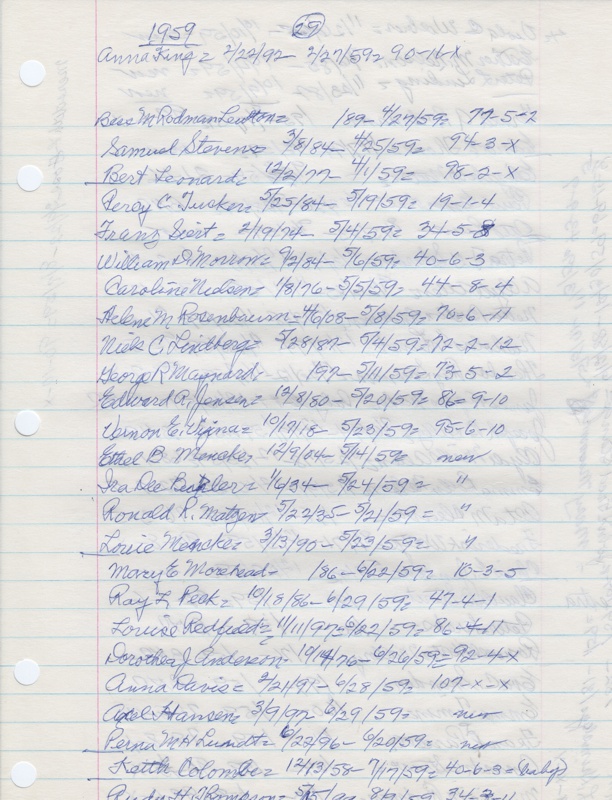 1959 29
Anna King = 2/22/92- 2/27/59= 90-11-x
Bess M Rodman 189- 4/27/59= 77-5-2
Samuel Stevens= 3/8/84- 4/25/59= 94-3-x
Bert Leonard= 12/2/77- 4/1/59= 98-2-x
Percy C. Tucker= 5/25/84- 5/19/59= 19-1-4
Franz Siert= 2/19/74- 5/4/59= 34-5-8
William D. Morrow= 9/2/84- 5/6/59= 40-6-3
Caroline Nielsen= 1/8/76- 5/5/59= 44-8-4
Helene M. Rosenbaum= 4/6/08- 5/8/59= 70-6-11
Niels C. Lindberg= 5/28/87- 5/4/59= 72-2-12
George R. Maynard= 197- 5/11/59= 73-5-2
Edward A. Jensen= 12/8/80- 5/20/59= 86-9-10
Vernon E. 10/7/18- 5/23/59= 95-6-10
Ethel B. Mencke= 12/9/04- 5/14/59= new
Ira Dee 1/6/34- 5/24/59= "
Ronald R. Matzen 5/22/35- 5/21/59= "
Louie Mencke= 3/13/90- 5/23/59= "
Mary E Morehead= 186- 6/22/59= 10-3-5
Ray L. Peck= 10/18/86- 6/29/59= 47-4-1
Louise Redfield= 11/11/97- 6/22/59= 86-4-11
Dorothea J. Anderson= 10/14/76- 6/26/59= 92-4-x
Anna Davis= 2/21/91- 6/28/59= 107-x-x
Axel Hansen= 3/9/97- 6/29/59= new
Perna M H 6/22/96- 6/20/59= new
Colombe= 12/13/58- 7/17/59= 40-6-3= (baby)
H. Thompson= 34-3-11